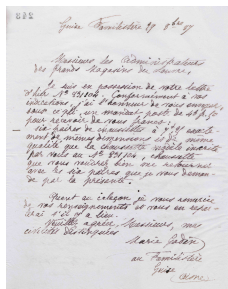 Guise Familistère 29 8bre 97
Messieurs les Administrateurs
des grands Magasins du Louvre,
Je suis en possession de votre lettre
d'hier N° Conformément à vos
indications, j'ai l'honneur de vous envoyer,
sous ce pli, un mandat-poste de
pour recevoir de vous franco:
six paires de chaussettes à exacte-
ment de mêmes dimensions et de même
qualité que la chaussette
par vous au N° chaussette
que vous voudrez bien me retourner
avec les six paires que je vous deman-
de par la présente.
Quant au caleçon je vous remercie
de vos renseignements et vous en repar-
lerai s'il y a lieu.
Veuillez agréer, Messieurs, mes
civilités distinguées
Marie Godin
au Familistère
Guise
Aisne